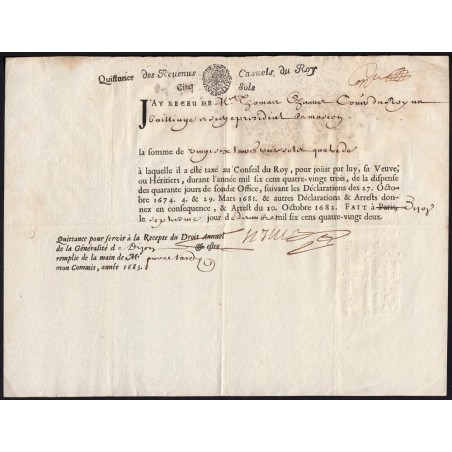 Quittance des Revenus Casuels, du Roy
Cinq Sols
J'AY RECEU DE Mre Thomas Chanut Conr du Roy au
bailliage et siege presidial de mascon
la somme de vingt six livres
à laquelle il a esté taxé au Conseil du Roy, pour joüir par luy, sa Veuve,
ou Héritiers, durant l'année mil six cens quatre-vingt trois, de la dispense
des quarante jours de sondit Office, suivant les Déclarations des 27. Octobre
1674. 4. & 29. Mars 1681. & autres Déclarations & Arrests don-
nez en conséquence, & Arrest du 10. Octobre 1682. FAIT à Paris, Dijon
le jour de mil six cens quatre-vingt deux.
Quittance pour servir à la Recepte du Droit Annuel
de la Généralité de Dijon & estre
remplie de la main de Mr
mon Commis, année 1683.